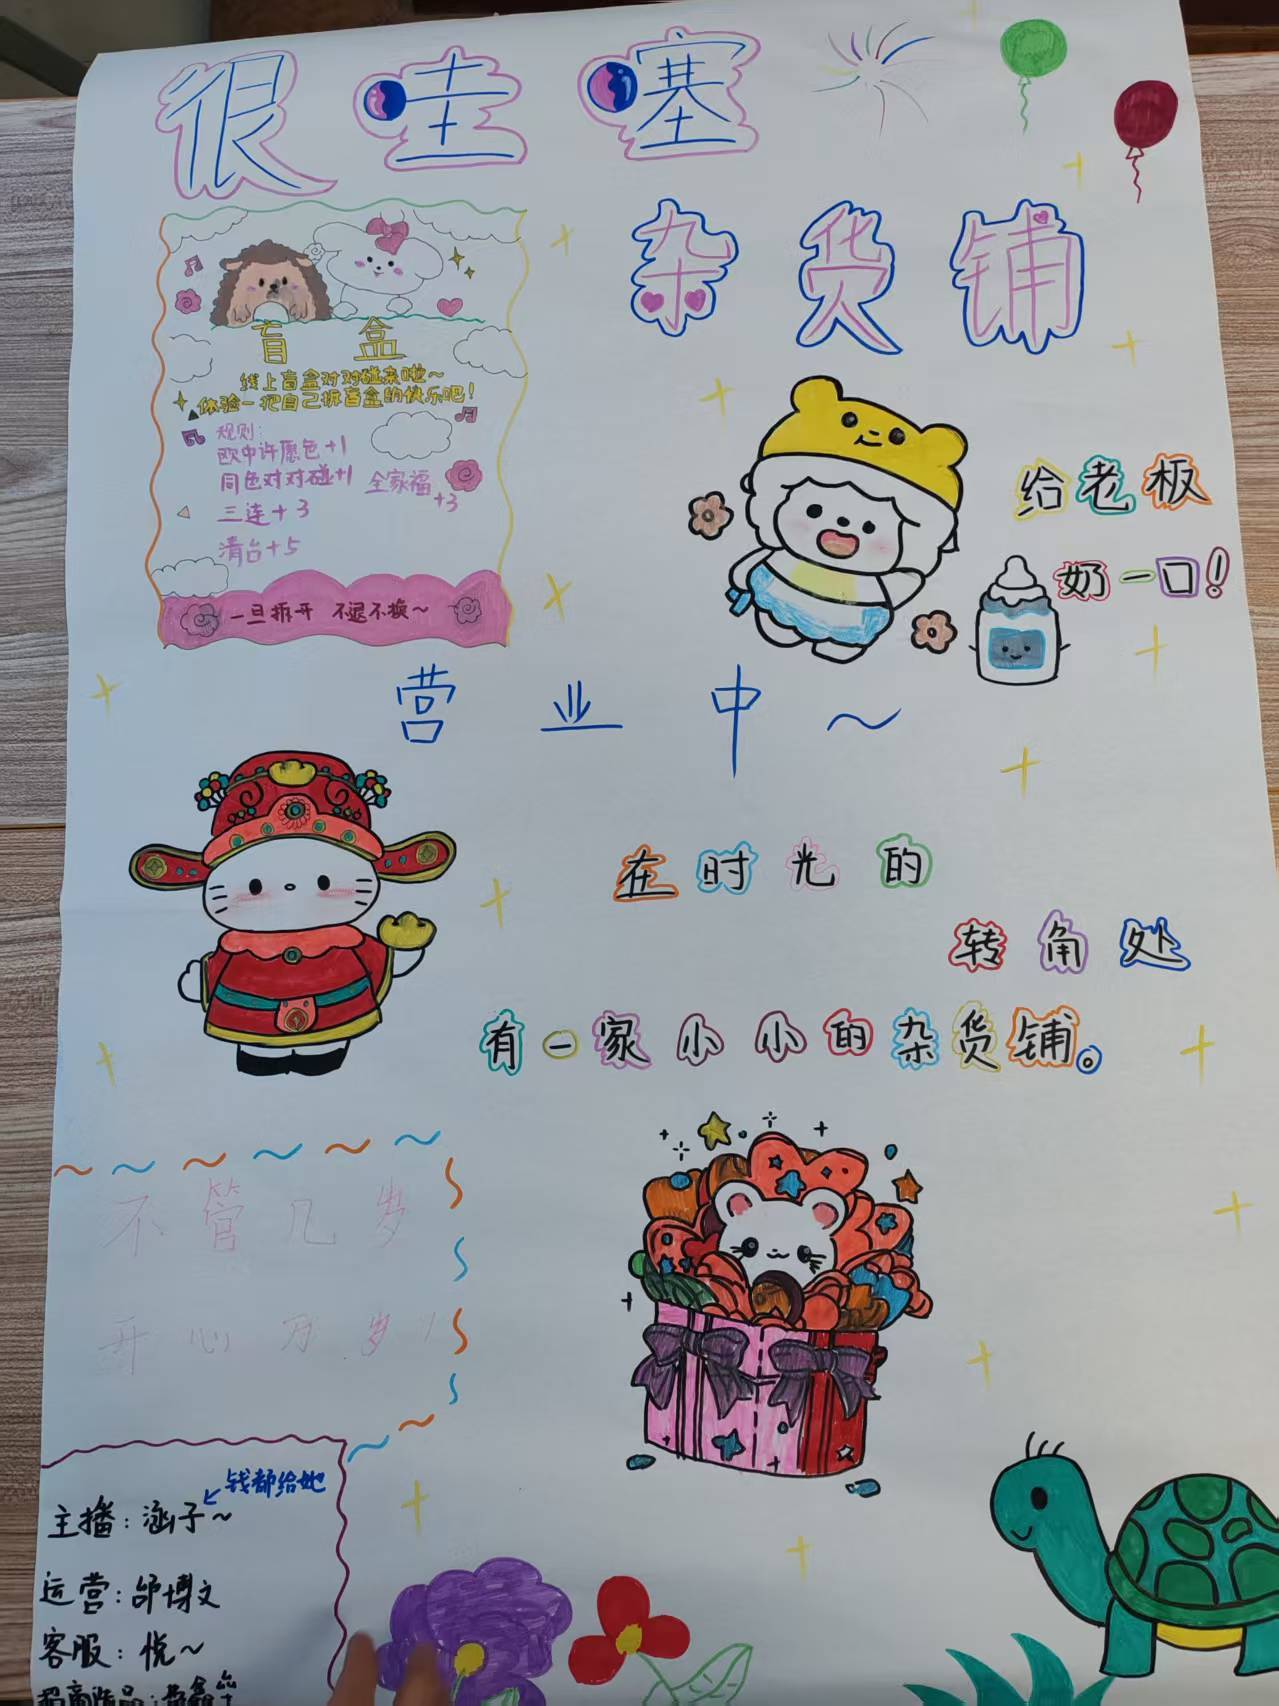 很哇塞
杂货铺
盲盒
线上盲盒对对碰来啦~
体验一把自己拆盲盒的快乐吧！
规则：
欧中许愿色+1
同色对对碰+1
全家福+3
三连+3
清台+5
一旦拆开 不退不换~
给老板
奶一口！
营业中~
在时光的
转角处
有一家小小的杂货铺。
不管几岁
开心万岁！
钱都给她
主播：涵子~
运营：邰博文
客服：悦~
招商选品：